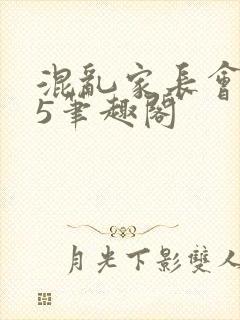 混亂家長會
5筆趣閣
月光下影雙人